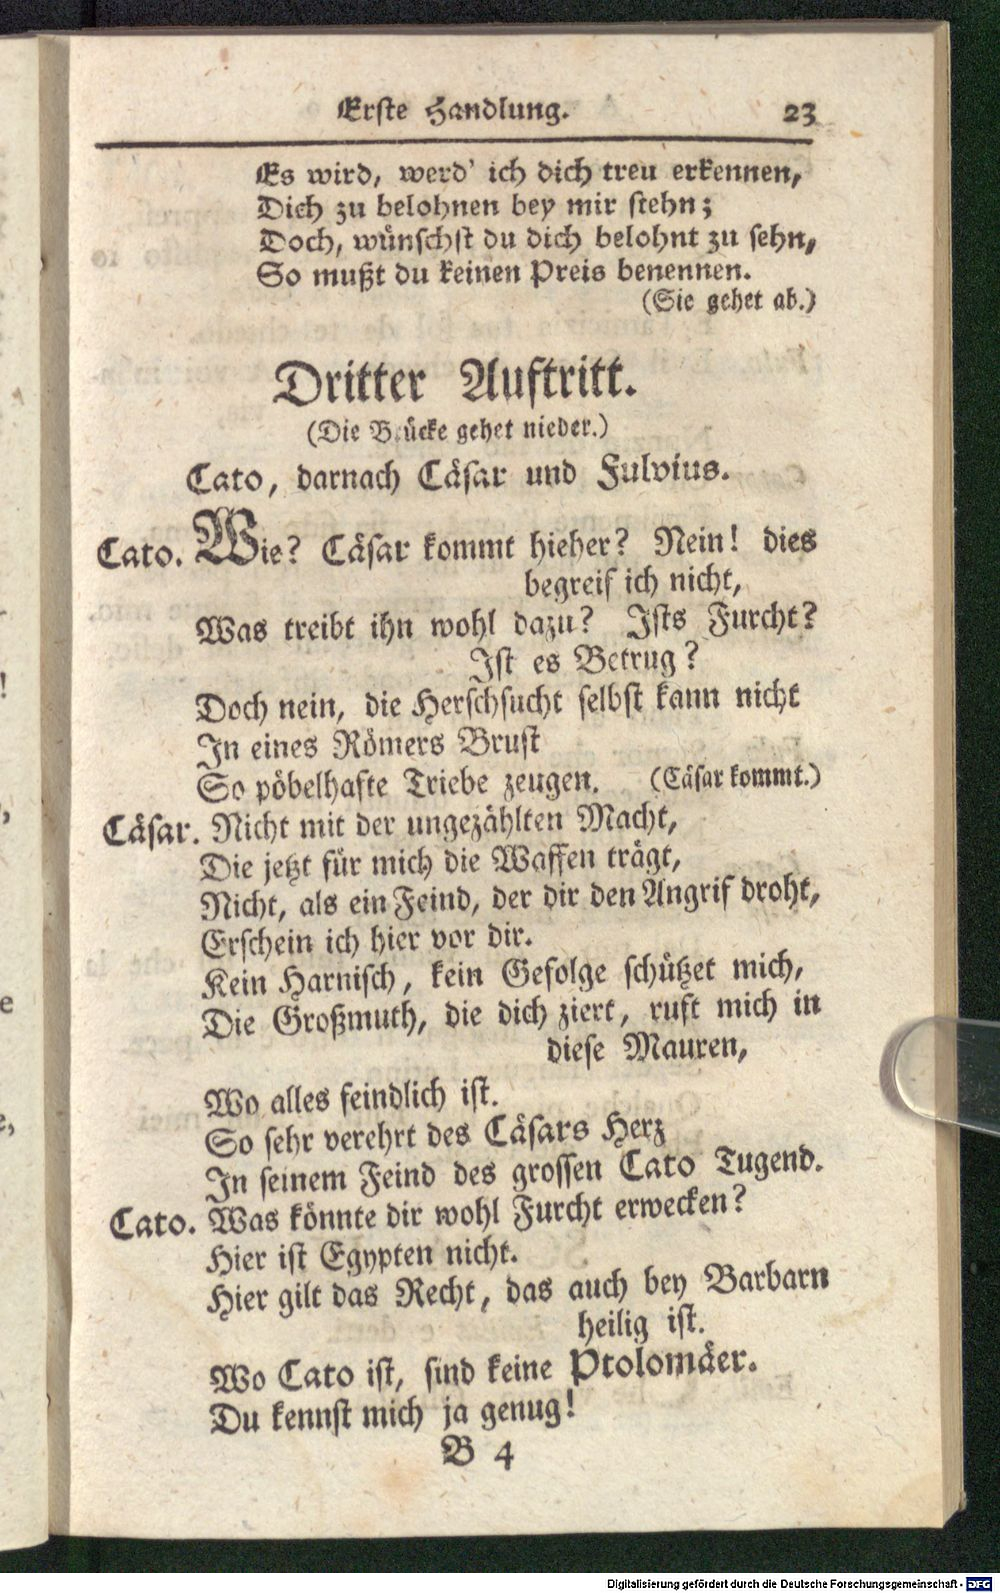 Erste Handlung. 23
Es wird, werd' ich dich treu erkennen,
Dich zu belohnen bey mir stehn;
Doch, wünschst du dich belohnt zu sehn,
So mußt du keinen Preis benennen.
(Sie gehet ab.)
Dritter Auftritt.
(Die Brücke gehet nieder.)
Cato, darnach Cäsar und Fulvius.
Cato. Wie? Cäsar kommt hieher? Nein! dies
begreif ich nicht,
Was treibt ihn wohl dazu? Ists Furcht?
Ist es Betrug?
Doch nein, die Herschsucht selbst kann nicht
In eines Römers Brust
So pöbelhafte Triebe zeugen. (Cäsar kommt.)
Cäsar. Nicht mit der ungezählten Macht,
Die jetzt für mich die Waffen trägt,
Nicht, als ein Feind, der dir den Angrif droht,
Erschein ich hier vor dir.
Kein Harnisch, kein Gefolge schützet mich,
Die Großmuth, die dich ziert, ruft mich in
diese Mauren,
Wo alles feindlich ist.
So sehr verehrt des Cäsars Herz
In seinem Feind des grossen Cato Tugend.
Cato. Was könnte dir wohl Furcht erwecken?
Hier ist Egypten nicht.
Hier gilt das Recht, das auch bey Barbarn
heilig ist.
Wo Cato ist, sind keine Ptolomäer.
Du kennst mich ja genug!
B 4
Digitalisierung gefördert durch die Deutsche Forschungsgemeinschaft - DFG